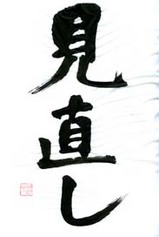 見直し